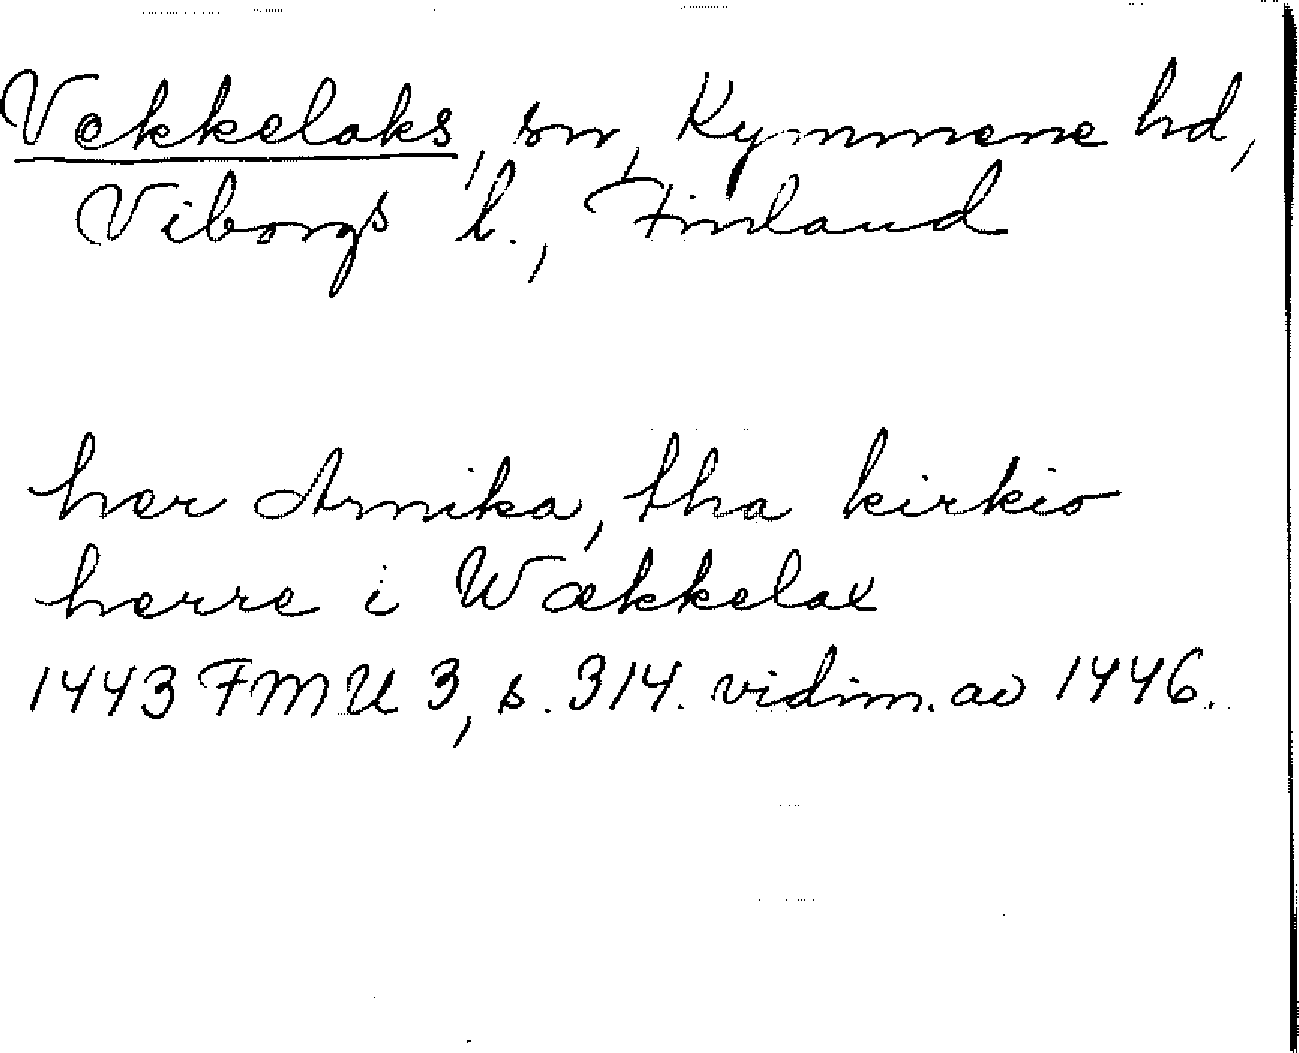 Vekkelaks, sn, Kymmene hd,
Viborgs l., Finland
her Arnika, tha kirkio
herre i Wækkelax
1443 FMU 3, s. 314. vidim. av 1446.